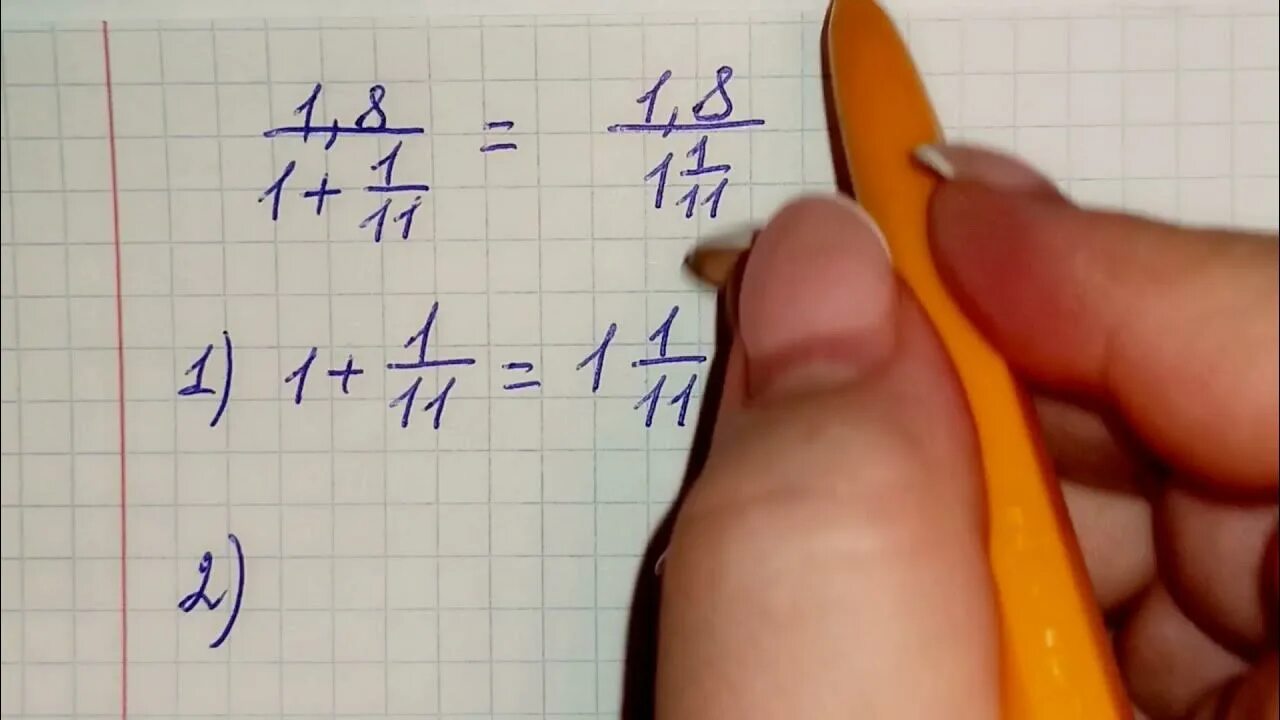 1,8 / (1 + 1/11) = 1,8 / 1 1/11
1) 1 + 1/11 = 1 1/11
2)